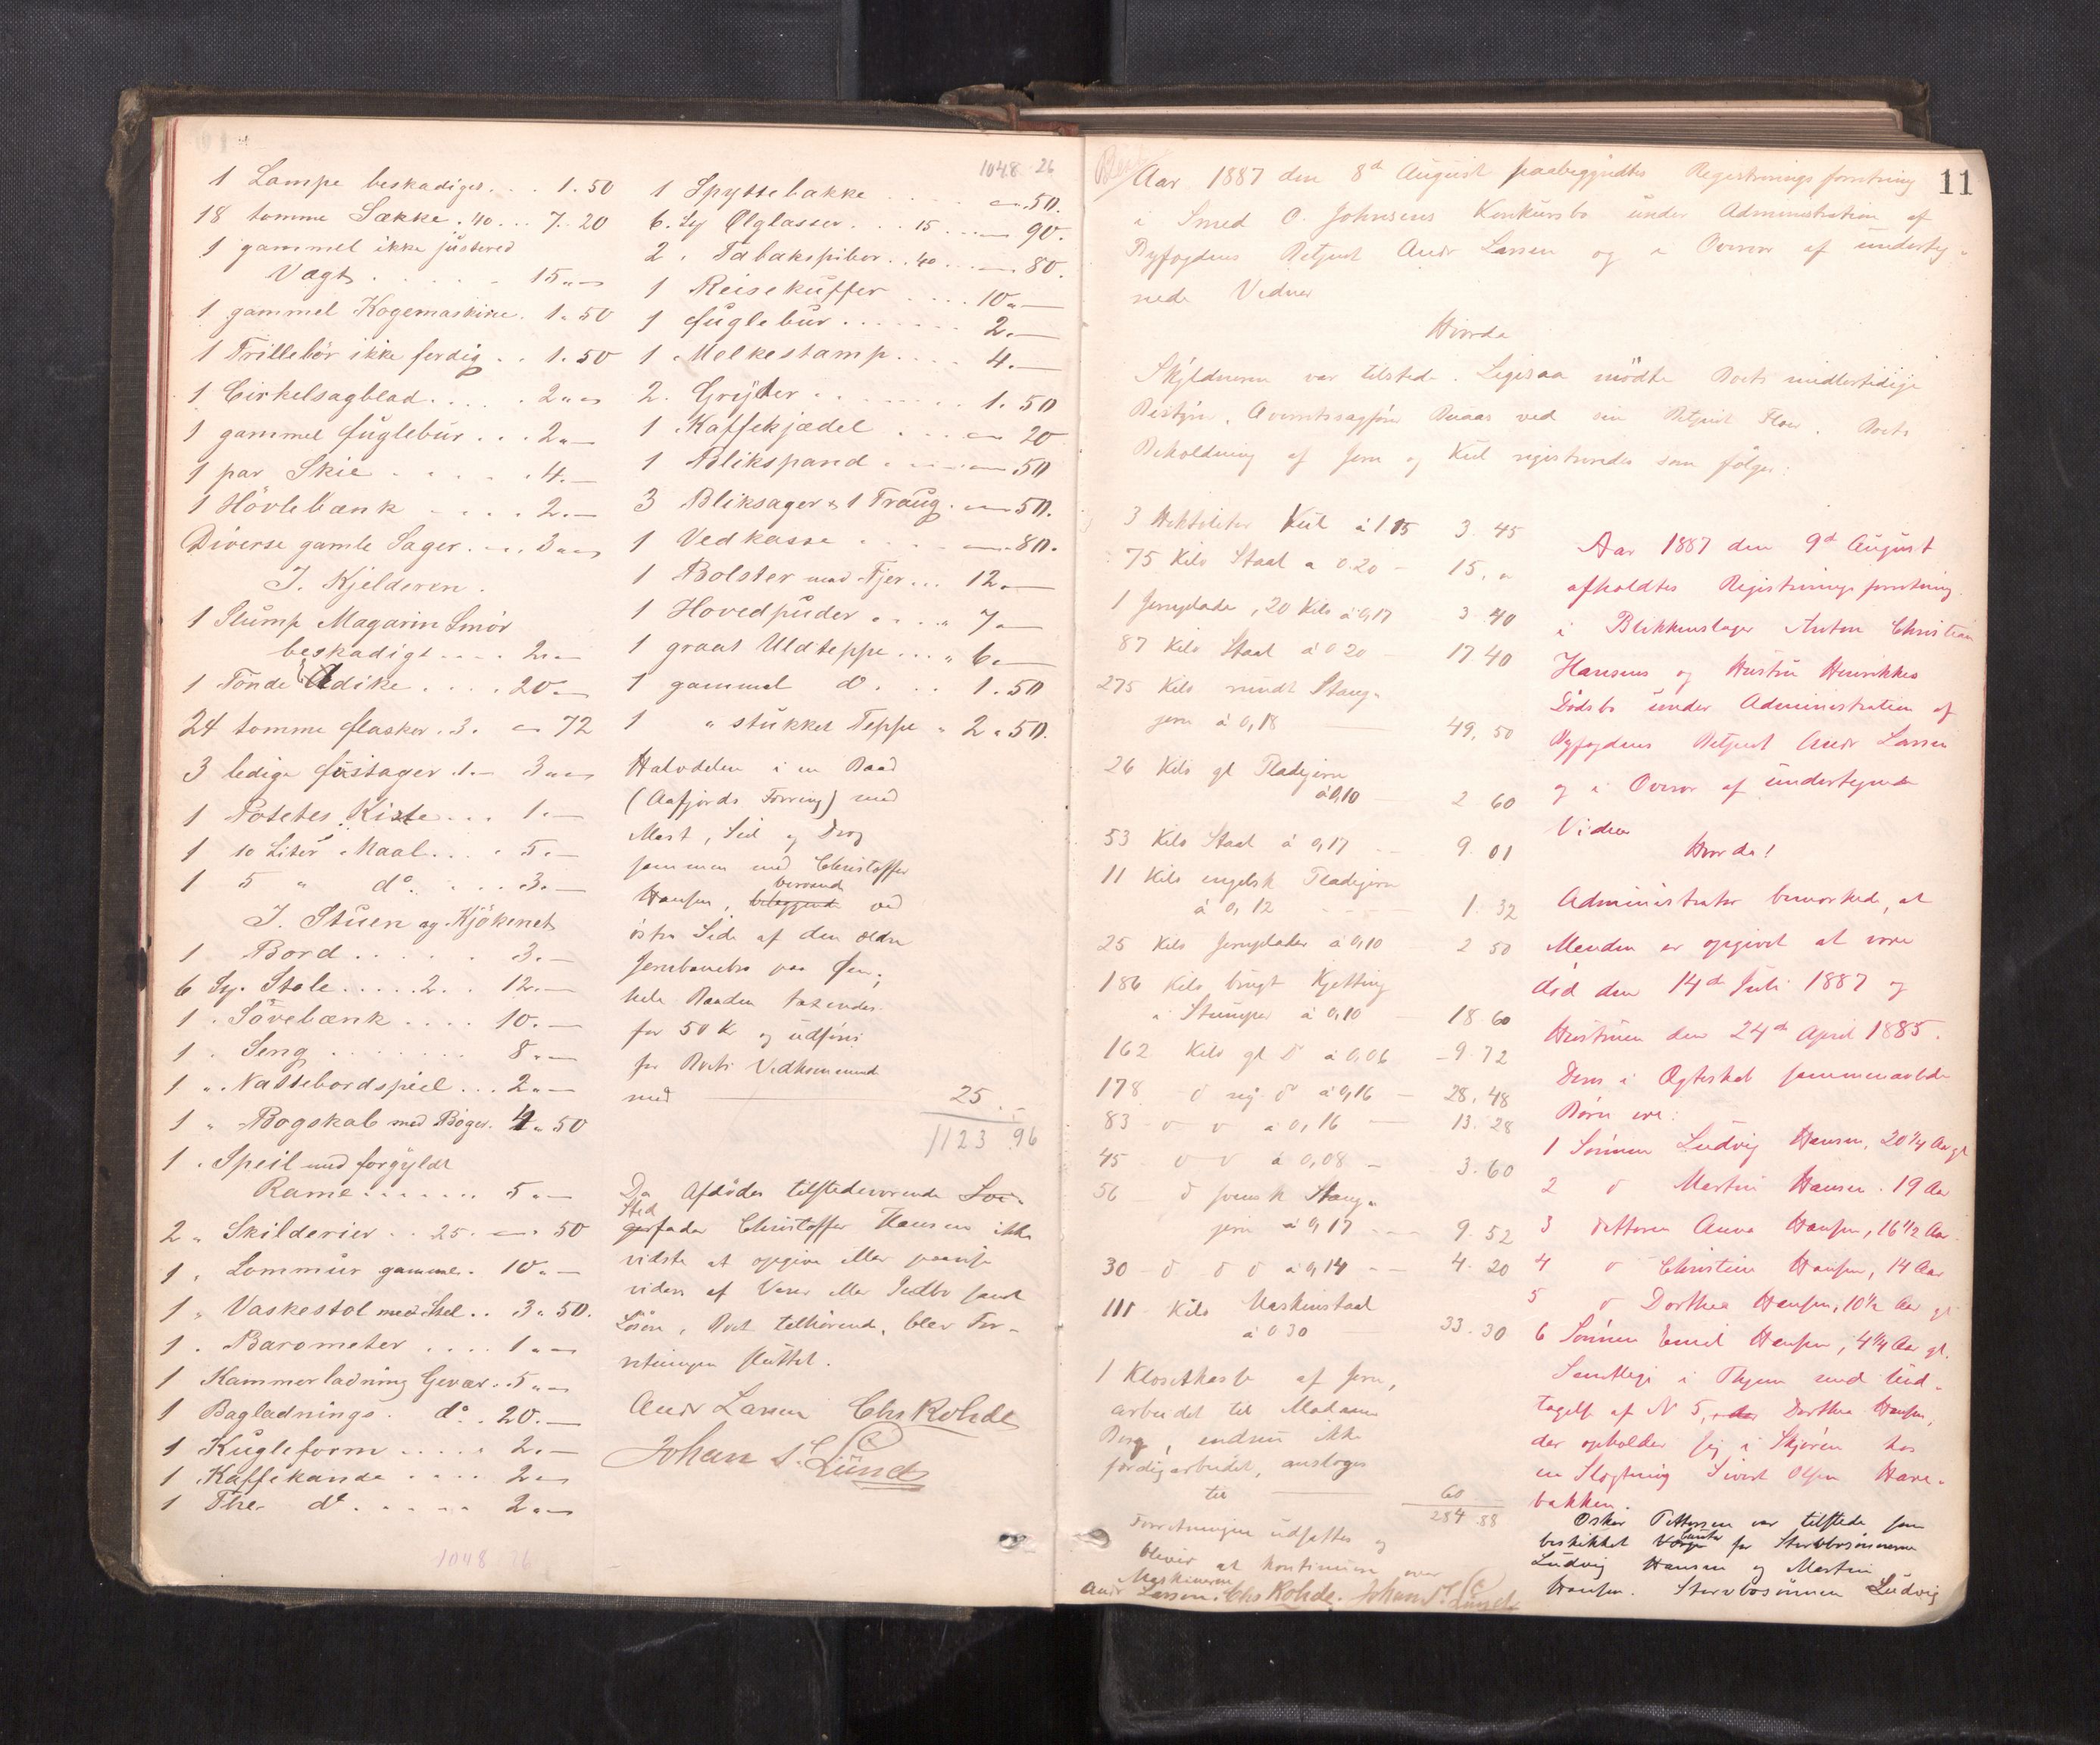 1 Lampe beskadiget . . . 1.50
18 tomme Sække . 40 . . . 7.20
1 gammel ikke justered
Vægt . . . . . . 15 " —
1 gammel Kogemaskine . 1. 50
1 Trillebör ikke ferdig . . 1. 50
1 Cirkelsagblad . . . . . 2 " —
1 gammel fuglebur . . . 2 " —
1 par Skie . . . . . . 4. —
1 Hövlebænk . . . . 2. —
Diverse gamle Sager . . . 3 " —
I. Kjelderen.
1 Slump Magarin Smör
beskadigt . . . . 2. —
1 Tönde Edike . . . . 20. —
24 tomme flasker . 3. — 72
3 ledige fustager . 1. — 3 " —
1 Potetes Kiste . . . 1. —
1 10 Liter Maal . . . . 5. —
1 5 " do . . . . 3. —
I. Stuen og Kjökenet
1 Bord . . . . . . 3. —
6 Sy. Stole . . . . . 2 . . 12. —
1 . Sövebænk . . . . 10. —
1 . Seng . . . . . . . 8. —
1 " Nattebordspiel . . . 2 " —
1 " Bogskab med Böger . 4 " 50
1 . Speil med forgyldt
Rame . . . . . . . 5 " —
2 " Skilderier . . 25 . — 50
1 , Lommeur gammel . 10 " —
1 " Vaskestol med Stel . . 3 " 50.
1 . Barometer . . . . 1 " —
1 Kammerladning Gevær . 5 " —
1 Bagladnings . do . 20. —
1 Kugleform . . . . . 2. —
1 Kaffekande . . . . 2 —
1 The do . . . . . 2 " —
1048 26
1048 26
1 Spyttebakke . . . . . — 50.
6. Sy Ølglasser . . . 15 . . . — 90.
2 . Tabakspiber . . 40 . . . — 80.
1 Reisekuffer . . . . 10 " —
1 fuglebur . . . . . . . 2. —
1 Melkestamp . . . . 4. —
2. Gryder . . . . . . . . 1. 50
1 Kaffekjædel . . . — 20
1 Blikspand . . . . . — 50
3 Bliksager & 1 Traug . — 50.
1 Vedkasse . . . . . — 80.
1 Bolster med Fjer . . . 12. —
1 Hovedpuder . . . . " 7 —
1 graat Uldteppe . . . " 6. —
1 gammel do . . . 1. 50
1 " stukket Teppe " 2 " 50.
Halvdelen i en Baad
(Aafjords Færing) med
Mast, Seil og Dræg
sammen med Christoffer
Hansen, beliggende beroende ved
östre Side af den ældre
Jernbanebro paa Øen;
hele Baaden taxeredes
for 50 Kr og udføres
for Boets Vedkommende
med — 25. —
1123 96
Da Afdödes tilstedeværende Svi-
gerfader Stedfader Christoffer Hansen ikke
vidste at opgive eller paavise
videre af Varer eller Indbo samt
Lösöre, Boet tilhörende, blev For-
retningen sluttet.
Andr Larsen Chs Rohde
Johan S. Lund
11
Aar 1887 den 8d August paabegyndtes Registrerings forretning
i Smed O. Johnsens Konkursbo under Administration af
Byfogdens Betjent Andr Larsen og i Overvær af underteg-
nede Vidner
Hvorda
Skyldneren var tilstede. Ligesaa mödte Boets midlertidige
Bestyrer, Overretssagförer Buaas ved sin Betjent Floer. Boets
Beholdning af Jern og Kul registreredes som fölger:
3 Hektoliter Kul á 1 15 3 45
75 Kilo Staal a 0.20 — 15. "
1 Jernplade, 20 Kilo á 0,17 3 40
87 Kilo Staal á 0 20 — 17 40
275 Kilo rundt Stang-
jern á 0,18 — 49, 50
26 Kilo gl Pladejern
á 0,10 2 60
53 Kilo Staal á 0,17 — 9. 01
11 Kilo engelsk Pladejern
á 0, 12 — 1. 32
25 Kilo Jernplader á 0,10 2 50
186 Kilo brugt Kjetting
i Stumper á 0,10 — 18 60
162 Kilo gl Do á 0,06 — 9. 72
178 do ny do á 0,16 — 28, 48
83 do do á 0, 16 — 13. 28
45 do do á 0,08 — 3. 60
56 do svensk Stang-
jern á 0,17 — 9. 52
30 do do do a 0,14 — 4. 20
111 Kilo Maskinstaal
á 0 30 — 33. 30
1 Klosetkasse af Jern,
arbeidet til Madame
Berg, endnu ikke
færdigarbeidet, ansloges
til — 60
284 88
Forretningen udsattes og
bliver at kontinuere over
Maskinerne
Andr Larsen. Chs Rohde. Johan S. Lund
Aar 1887 den 9d August
afholdtes Registreringsforretning
i Blikkenslager Anton Christian
Hansens og Hustru Henrikkes
Dödsbo under Administration af
Byfogdens Betjent Andr Larsen
og i Overvær af undertegnede
Vidner
Hvorda!
Administrator bemærkede, at
Manden er opgivet at være
död den 14d Juli 1887 og
Hustruen den 24d April 1885.
Deres i Ægteskab sammenavlede
Börn ere:
1 Sönnen Ludvig Hansen, 20 1/4 Aar gl
2 do Martin Hansen . 19 Aar
3 datteren Anna Hansen, 16 1/2 Aar
4 do Christine Hansen, 14 Aar
5 do Dorthea Hansen, 10 1/2 Aar gl
6 Sönnen Emil Hansen, 4 1/4 Aar gl.
Samtlige i Thjem med Und-
tagelse af N 5, Dorthea Hansen,
der opholder sig i Skjörn hos
en Slægtning Sivert Olsen Hare-
bakken.
Oskar Pettersen var tilstede som
beskikket Værge for Stervbosönnerne
Ludvig Hansen og Martin
Hansen. Stervbosönnen Ludvig